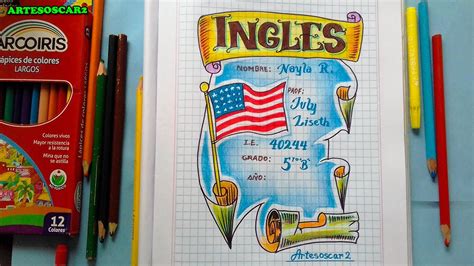 ARTESOSCAR2
ARCOIRIS
ápices de colores
LARGOS
Colores vivos
Mayor resistencia
a la rotura
Mina que no
se astilla
12
Colores
INGLES
NOMBRE: Nayla R.
PROF:
July
Liseth
I.E. 40244
GRADO: 5to "B"
AÑO:
Artesoscar2